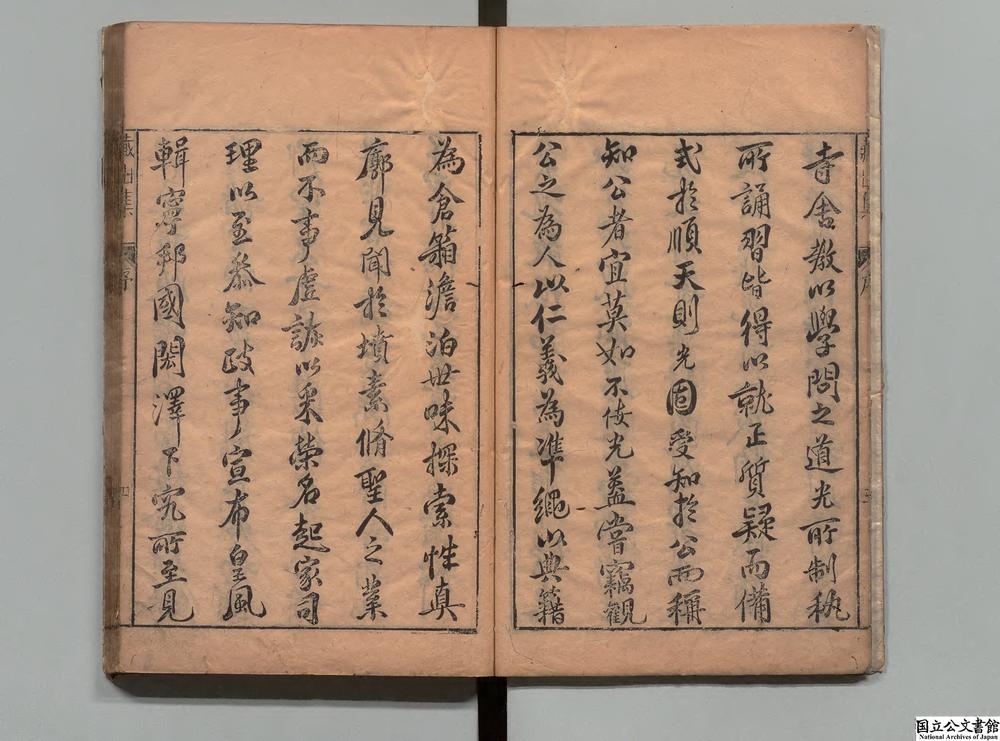 寺舍教以學問之道光所制執
所誦習皆得以就正質疑而備
式於順天則光固受知於公而稱
知公者宜莫如不佞光蓋嘗竊觀
公之為人以仁義為準繩以典籍
為倉箱澹泊世味探索性真
廓見聞於墳素脩聖人之業
而不事虛詠以采榮名起家司
理以至叅知政事宣布皇風
輯寧邦國闓澤下究所至見
序
四
国立公文書館
National Archives of Japan